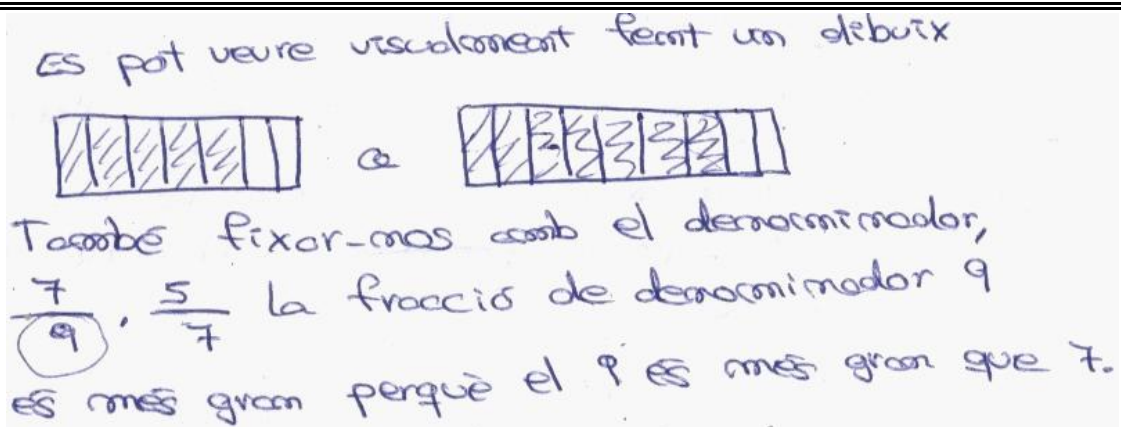 Es pot veure visualment fent un dibuix
a
També fixar-nos amb el denominador,
7/9, 5/7 la fracció de denominador 9
és més gran perquè el 9 és més gran que 7.